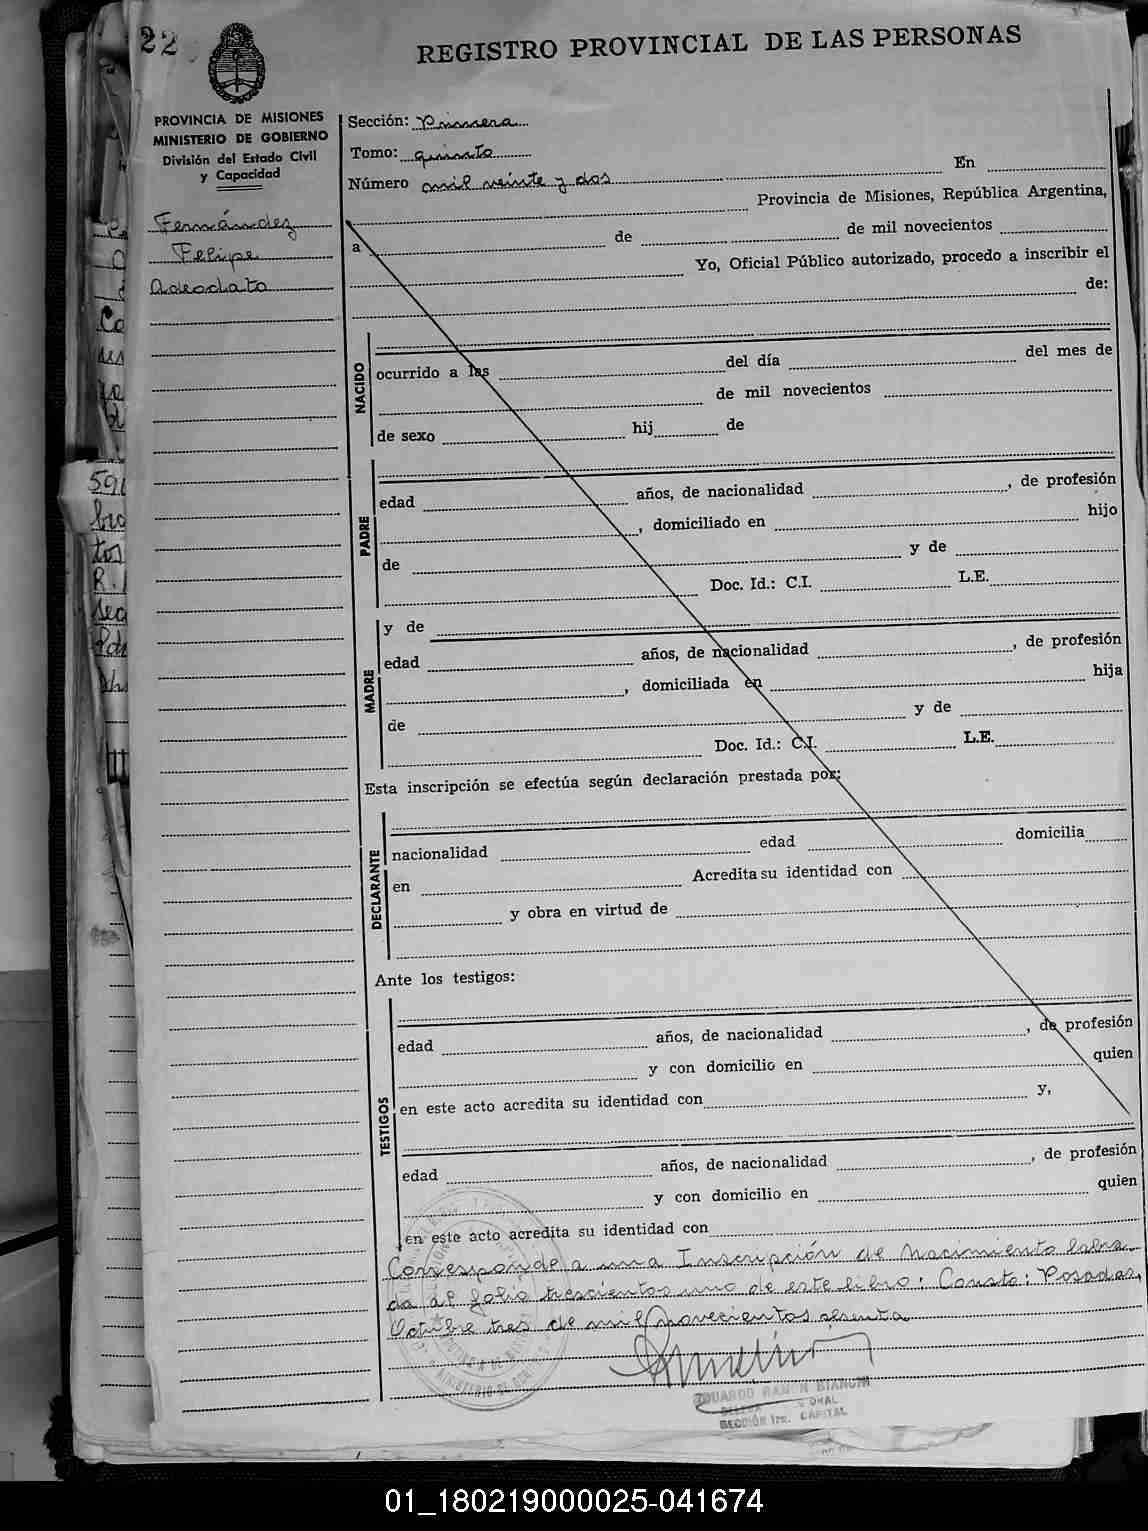 22
REGISTRO PROVINCIAL DE LAS PERSONAS
PROVINCIA DE MISIONES
MINISTERIO DE GOBIERNO
División del Estado Civil
y Capacidad
Fernández
Felipe
Adeodato
Sección: Primera
Tomo: quinto
Número mil veinte y dos En
Provincia de Misiones, República Argentina,
a de de mil novecientos
Yo, Oficial Público autorizado, procedo a inscribir el
de:
NACIDO
ocurrido a las del día del mes de
de mil novecientos
de sexo hij de
PADRE
edad años, de nacionalidad , de profesión
, domiciliado en hijo
de y de
Doc. Id.: C.I. L.E.
MADRE
y de
edad años, de nacionalidad , de profesión
, domiciliada en hija
de y de
Doc. Id.: C.I. L.E.
Esta inscripción se efectúa según declaración prestada por:
DECLARANTE
nacionalidad edad domicilia
en Acredita su identidad con
y obra en virtud de
Ante los testigos:
TESTIGOS
edad años, de nacionalidad , de profesión
y con domicilio en quien
en este acto acredita su identidad con y,
edad años, de nacionalidad , de profesión
y con domicilio en quien
en este acto acredita su identidad con
Corresponde a una Inscripción de Nacimiento labra
da al folio trescientos uno de este libro: Consta: Posadas,
Octubre tres de mil novecientos sesenta
EDUARDO RAMON BIANCHI
SECCIÓN 1ra. CAPITAL
01_180219000025-041674